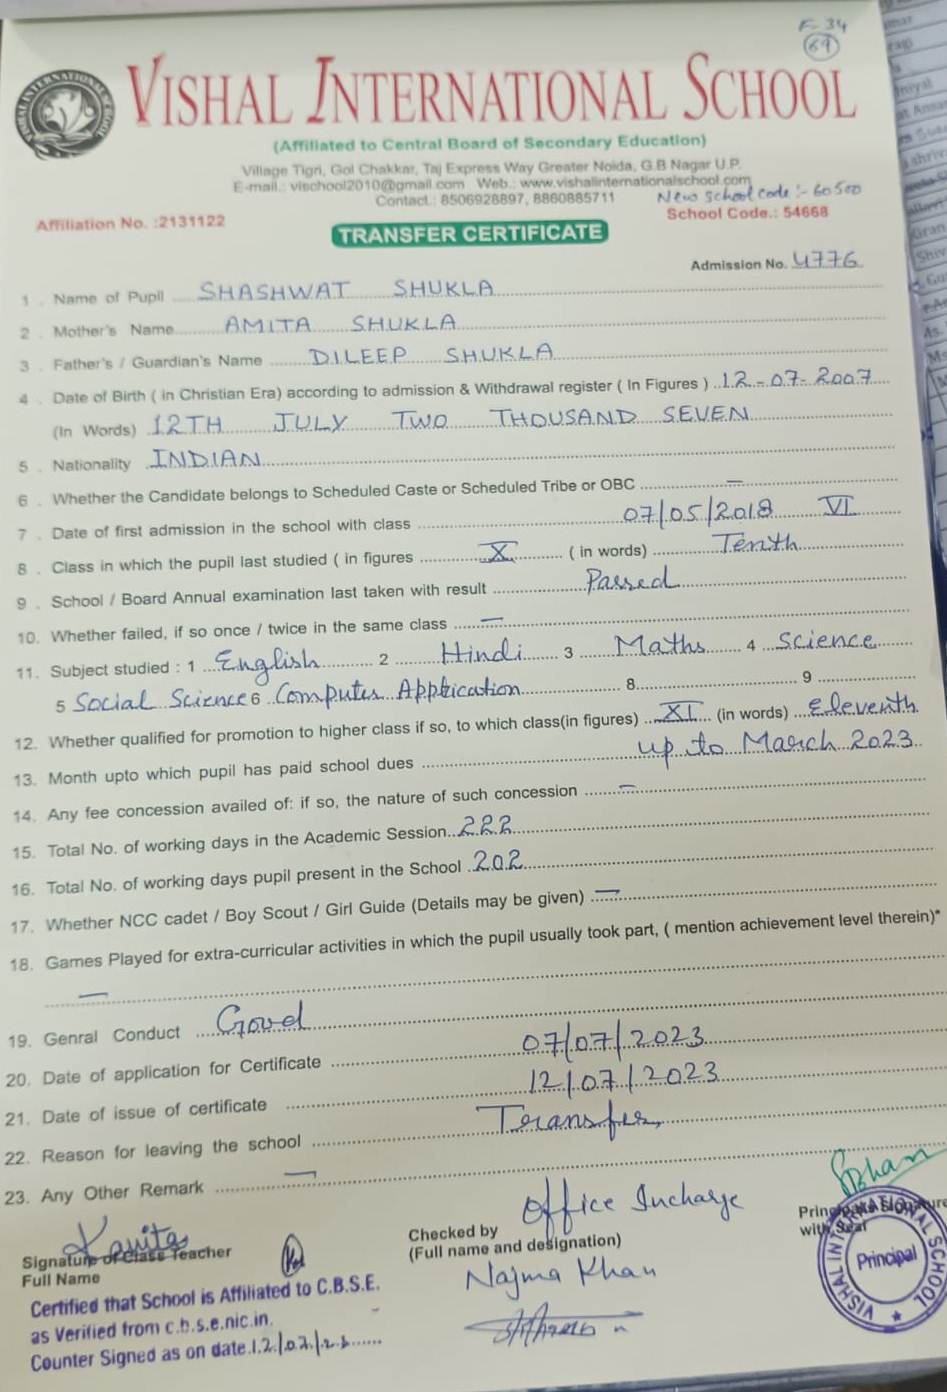 F-34
69
VISHAL INTERNATIONAL SCHOOL
(Affiliated to Central Board of Secondary Education)
Village Tigri, Gol Chakkar, Taj Express Way Greater Noida, G.B Nagar U.P.
E-mail.: vischool2010@gmail.com Web.: www.vishalinternationalschool.com
Contact.: 8506928897, 8860885711
New School Code :- 60500
Affiliation No. :2131122
School Code.: 54668
TRANSFER CERTIFICATE
Admission No. 4776
1 . Name of Pupil SHASHWAT SHUKLA
2 . Mother's Name AMITA SHUKLA
3 . Father's / Guardian's Name DILEEP SHUKLA
4 . Date of Birth ( in Christian Era) according to admission & Withdrawal register ( In Figures ) 12-07-2007
(In Words) 12TH JULY TWO THOUSAND SEVEN
5 . Nationality INDIAN
6 . Whether the Candidate belongs to Scheduled Caste or Scheduled Tribe or OBC —
7 . Date of first admission in the school with class 07/05/2018 VI
8 . Class in which the pupil last studied ( in figures X ( in words) Tenth
9 . School / Board Annual examination last taken with result Passed
10. Whether failed, if so once / twice in the same class —
11. Subject studied : 1 English 2 Hindi 3 Maths 4 Science
5 Social Science 6 Computer Application 8 9
12. Whether qualified for promotion to higher class if so, to which class(in figures) XI (in words) Eleventh
13. Month upto which pupil has paid school dues up to March 2023
14. Any fee concession availed of: if so, the nature of such concession —
15. Total No. of working days in the Academic Session 222
16. Total No. of working days pupil present in the School 202
17. Whether NCC cadet / Boy Scout / Girl Guide (Details may be given) —
18. Games Played for extra-curricular activities in which the pupil usually took part, ( mention achievement level therein)*
—
19. Genral Conduct Good
20. Date of application for Certificate 07/07/2023
21. Date of issue of certificate 12/07/2023
22. Reason for leaving the school Transfer
23. Any Other Remark —
Kavita
Signature of Class Teacher
Full Name
Checked by Office Incharge
(Full name and designation)
Najma Khan
Principal's Signature
with Seal
VISHAL INTERNATIONAL SCHOOL
Principal
Certified that School is Affiliated to C.B.S.E.
as Verified from c.b.s.e.nic.in.
Counter Signed as on date.12/07/23